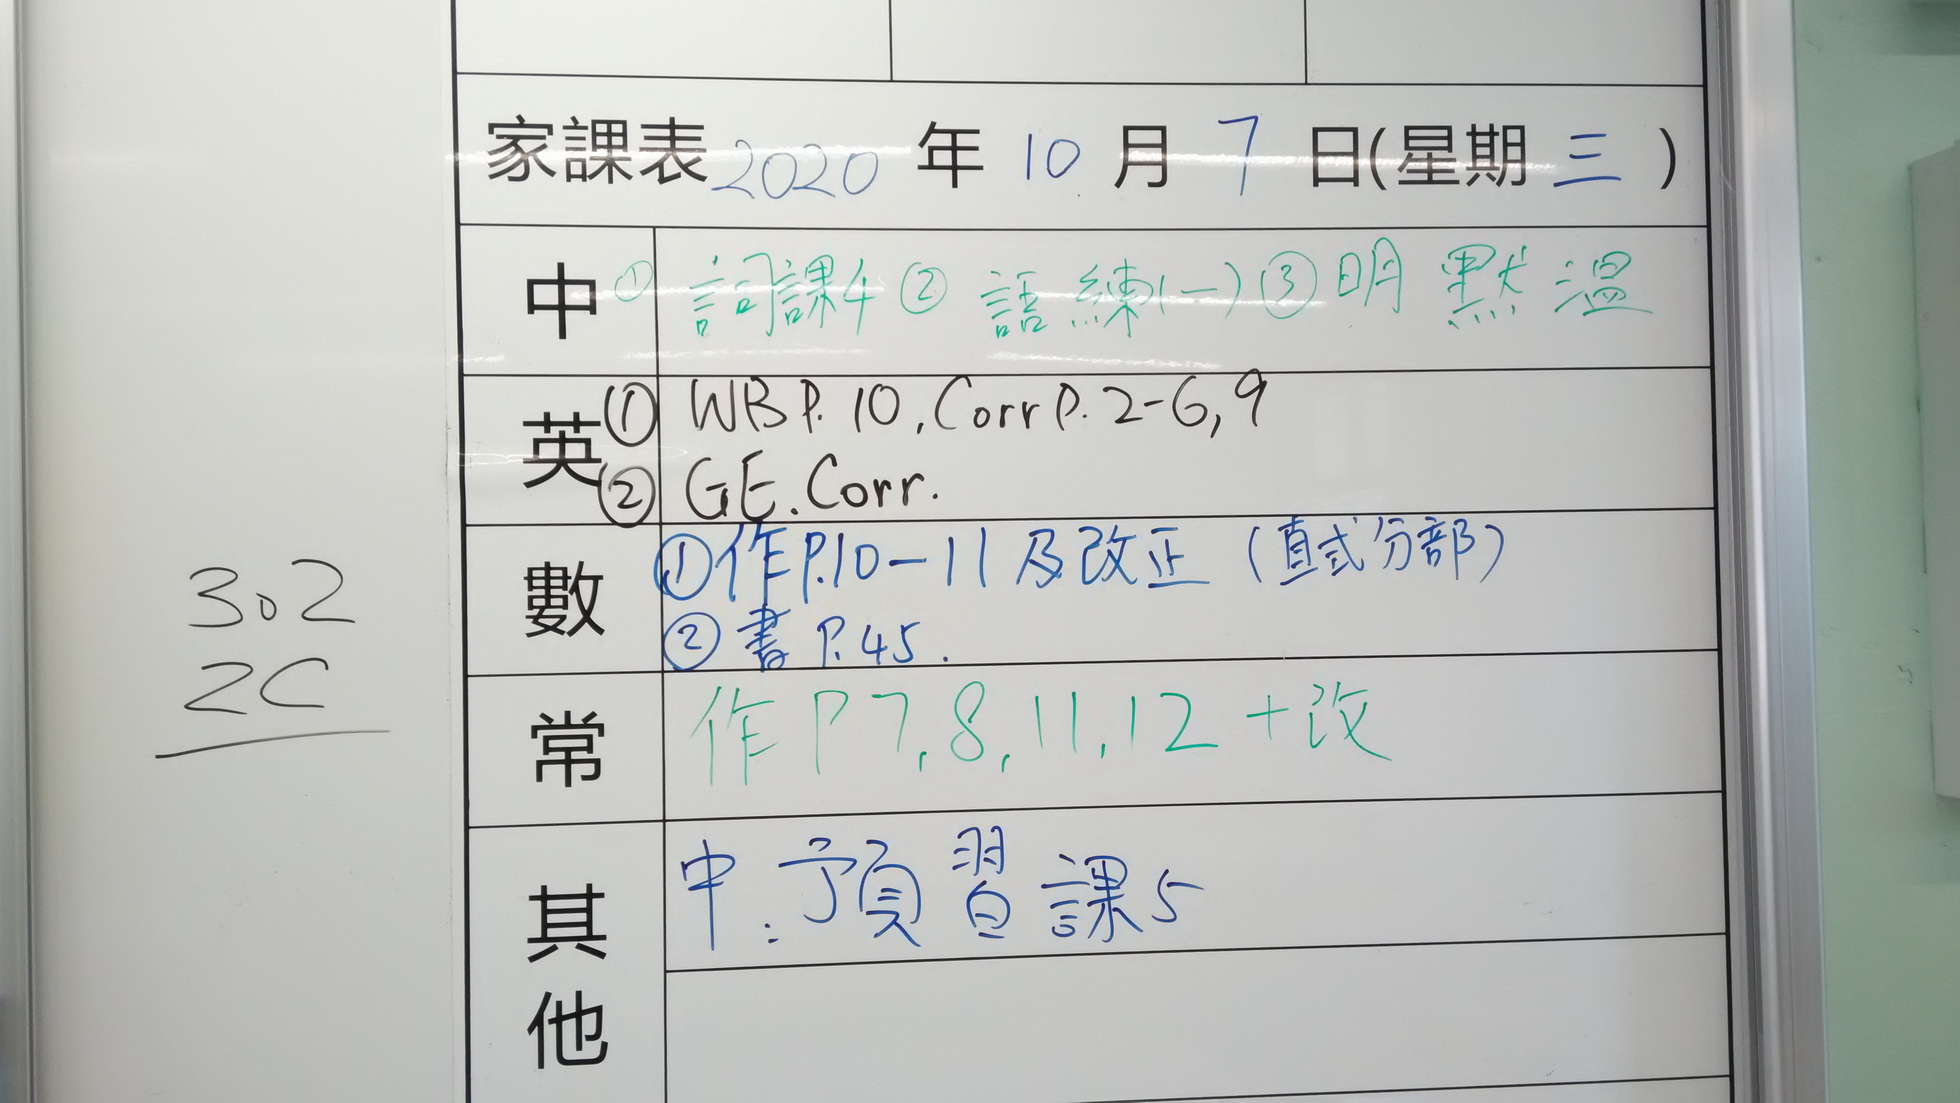 家課表 2020 年 10 月 7 日(星期 三 )
中 ① 詞課4 ② 語練(一) ③ 明默溫
英 ① WB P. 10, Corr P. 2-6, 9
② GE. Corr.
數 ① 作P.10-11及改正 (直式分部)
② 書 P.45.
常 作 P 7, 8, 11, 12 + 改
其他 中:預習課5
302
2C